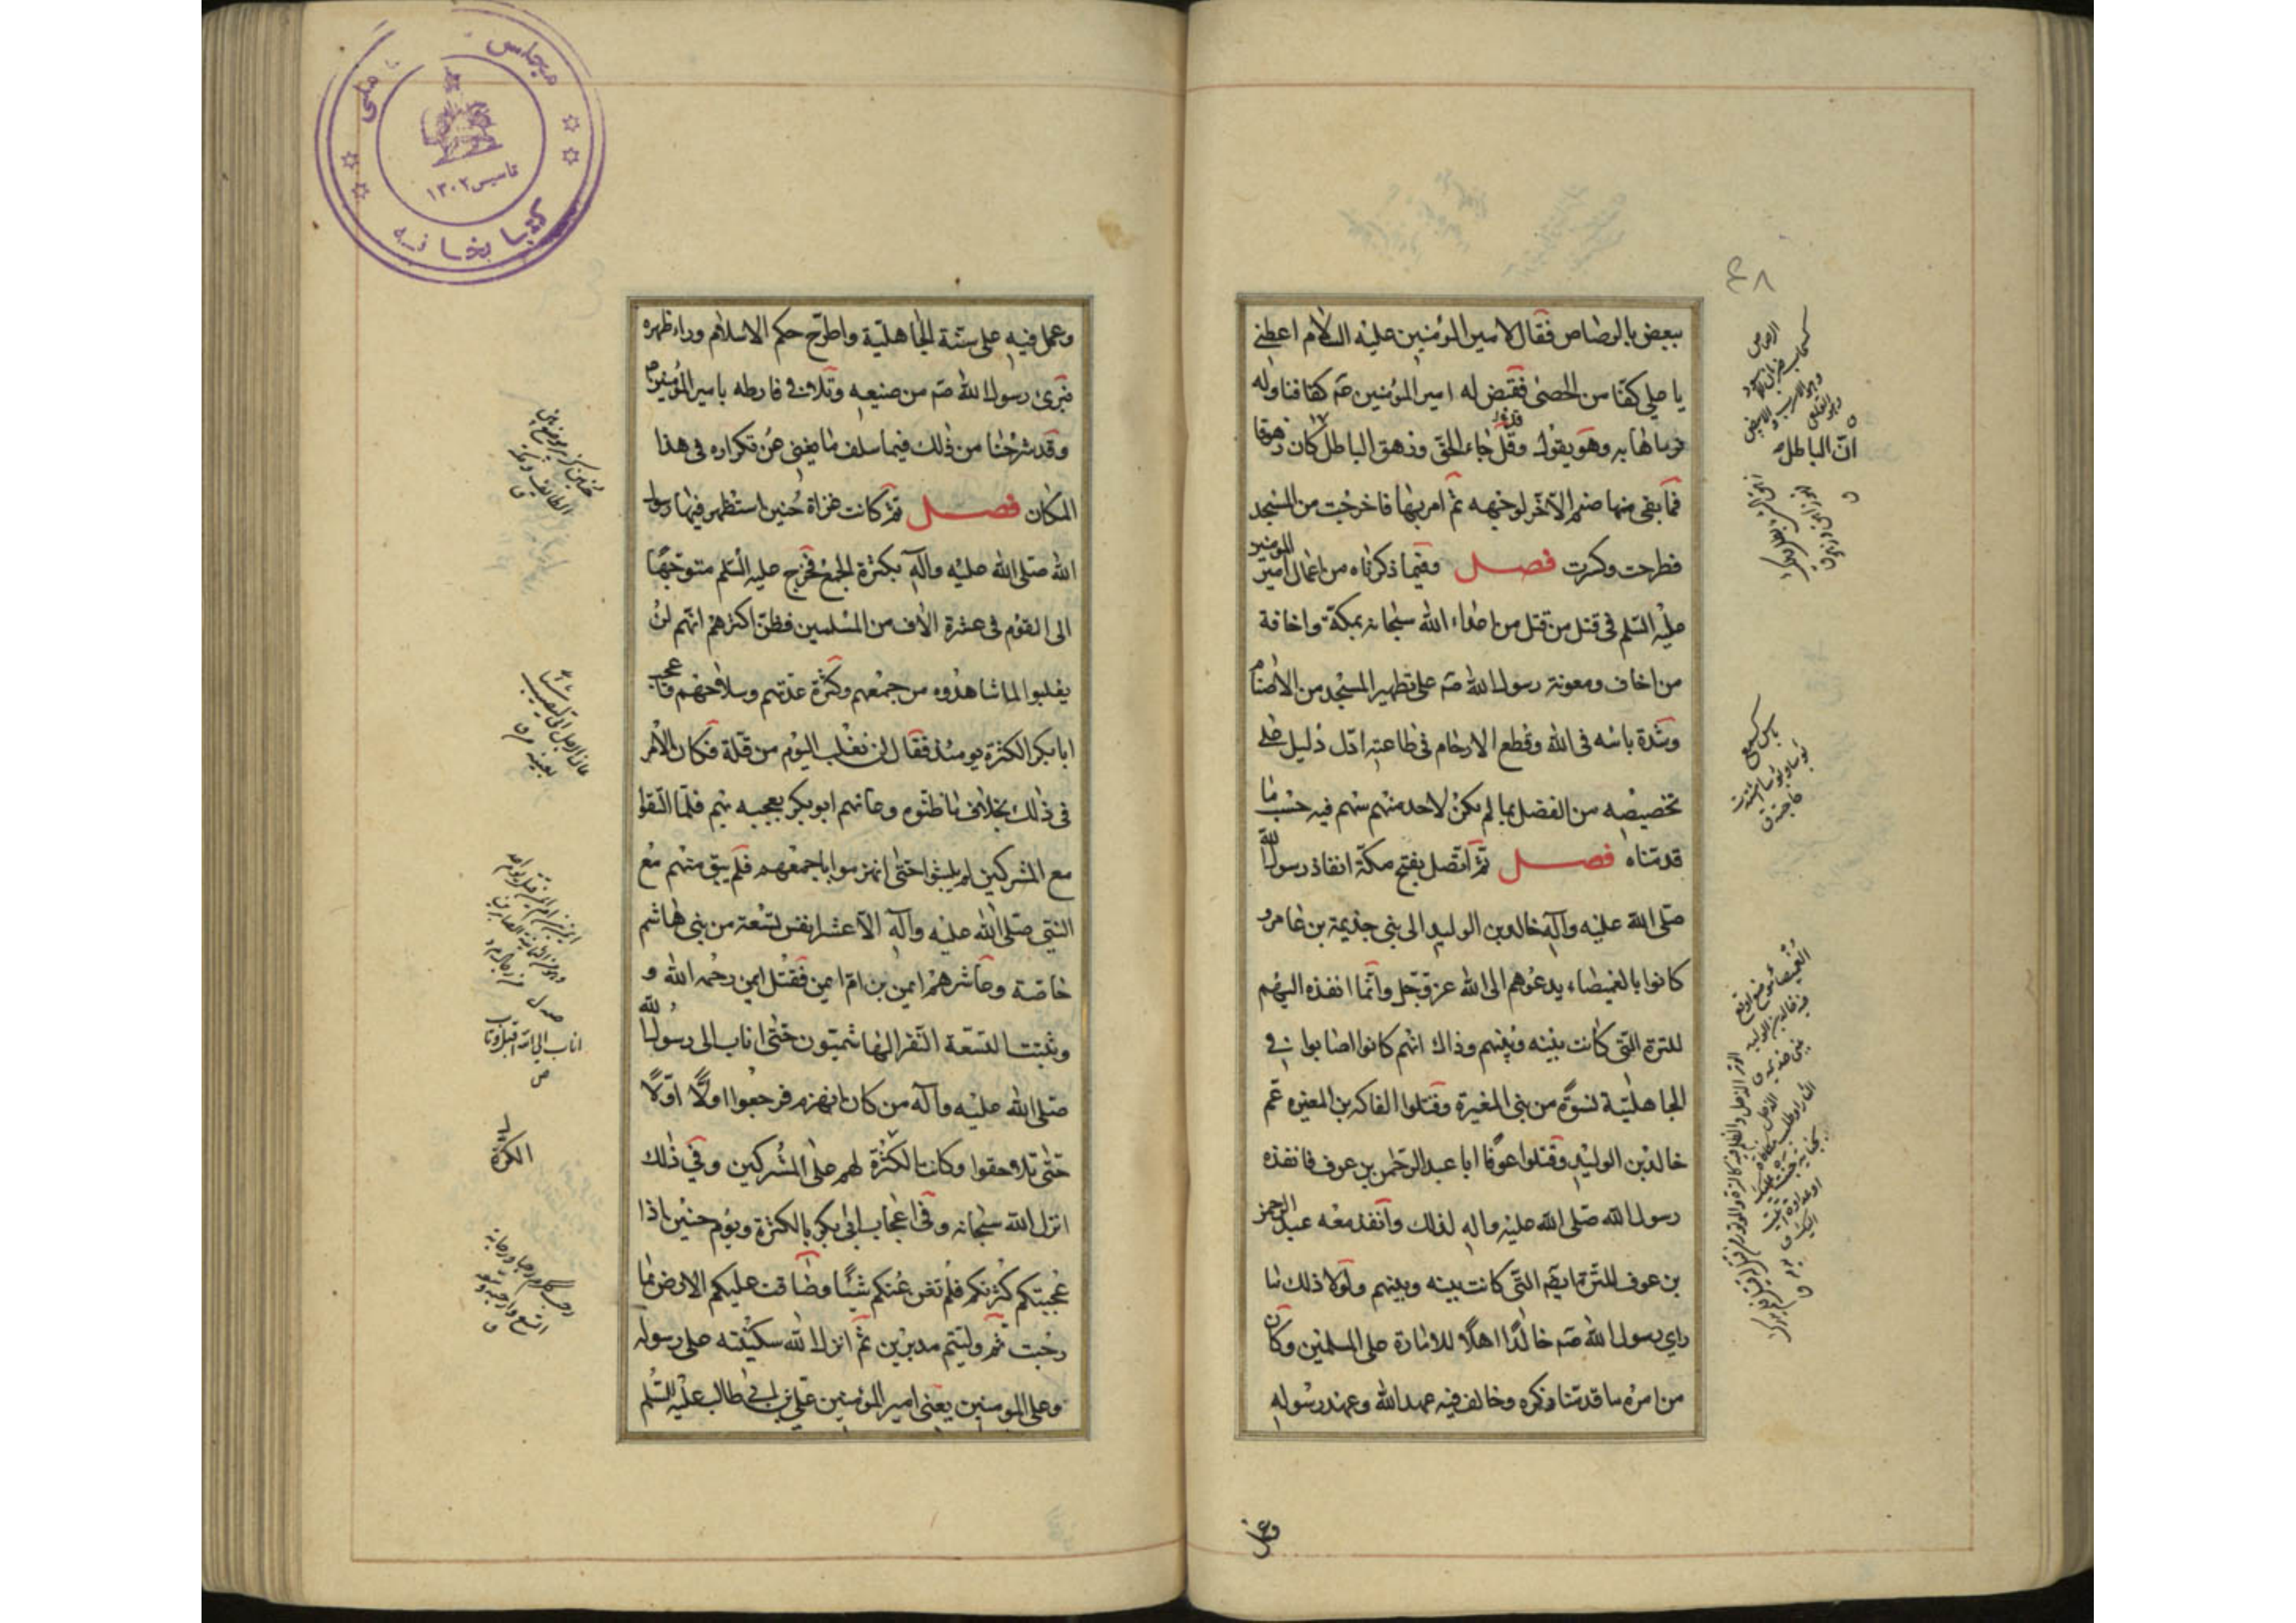 ٤٨
ببعض بالرصاص فقال لامير المؤمنين عليه السلام اعطنى
يا على كفّا من الحصى فقبض له امير المؤمنين صَم كفا فناوله
فرماها به وهو يقول وقل جاء الحق وزهق الباطل كان زهوقا
انّ الباطل
فما بقى منها صنم الّا خرّ لوجهه ثم امر بها فاخرجت من المسجد
فطرحت وكسرت فصل وفيما ذكرناه من اعمال امير المومنين
عليه السّلم فى قتل من قتل من اعداء الله سبحانه بمكة واخافة
من اخاف ومعونة رسول الله صَم على تطهير المسجد من الاصنام
وشدة باسه فى الله وقطع الارحام فى طاعته ادل دليل على
تخصيصه من الفضل بما لم يكن لاحد منهم سهم فيه حسب ما
قدمناه فصل ثم اتصل بفتح مكة انفاذ رسول الله
صلى الله عليه وآله خالد بن الوليد الى بنى جذيمة بن عامر و
كانوا بالغميصاء يدعوهم الى الله عز وجل وانما انفذه اليهم
للترة التى كانت بينه وبينهم وذاك انهم كانوا اصابوا فى
الجاهليّة نسوة من بنى المغيرة وقتلوا الفاكه بن المغيره عم
خالد بن الوليد وقتلوا عوفا ابا عبد الرحمن بن عوف فانفذه
رسول الله صلى الله عليه واله لذلك وانفذ معه عبد الرحمن
بن عوف للترة ايضا التى كانت بينه وبينهم ولولا ذلك ما
راى رسول الله صَم خالدا اهلا للامارة على المسلمين وكان
من امره ما قدمنا ذكره وخالف فيه عهد الله وعهد رسوله
وعمل
وعمل فيه على سنة الجاهليّة واطرح حكم الاسلام وراء ظهره
فبرئ رسول الله صَم من صنيعه وتلافى فارطه بامير المؤمنين
وقد شرحنا من ذلك فيما سلف ما يغنى عن تكراره فى هذا
المكان فصل ثم كانت غزاة حنين استظهر فيها رسول
الله صلى الله عليه وآله بكثرة الجمع فخرج عليه السّلم متوجها
الى القوم فى عشرة الاف من المسلمين فظن اكثرهم انهم لن
يغلبوا لما شاهدوه من جمعهم وكثرة عدتهم وسلاحهم فاعجب
ابا بكر الكثرة يومئذ فقال لن نغلب اليوم من قلة فكان الامر
فى ذلك بخلاف ما ظنوه وعانهم ابو بكر بعجبه بهم فلما التقوا
مع المشركين لم يلبثوا حتى انهزموا باجمعهم فلم يبق منهم مع
النبى صلى الله عليه وآله الا عشرة انفس تسعة من بنى هاشم
خاصّة وعاشرهم ايمن بن ام ايمن فقتل ايمن رحمه الله و
وثبتت التسعة النفر الهاشميّون حتى اناب الى رسول الله
صلى الله عليه وآله من كان انهزم فرجعوا اولا اولا
حتى تلاحقوا وكانت الكثرة لهم على المشركين وفى ذلك
انزل الله سبحانه وفى اعجاب ابى بكر بالكثرة ويوم حنين اذا
عجبتكم كثرتكم فلم تغن عنكم شيئا وضاقت عليكم الارض بما
رحبت ثم وليتم مدبرين ثم انزل الله سكينته على رسوله
وعلى المومنين يعنى امير المؤمنين على بن ابى طالب عليه السّلم
الكرة
مجلس
ملى
تاسيس ١٣٠٢
كتابخانه